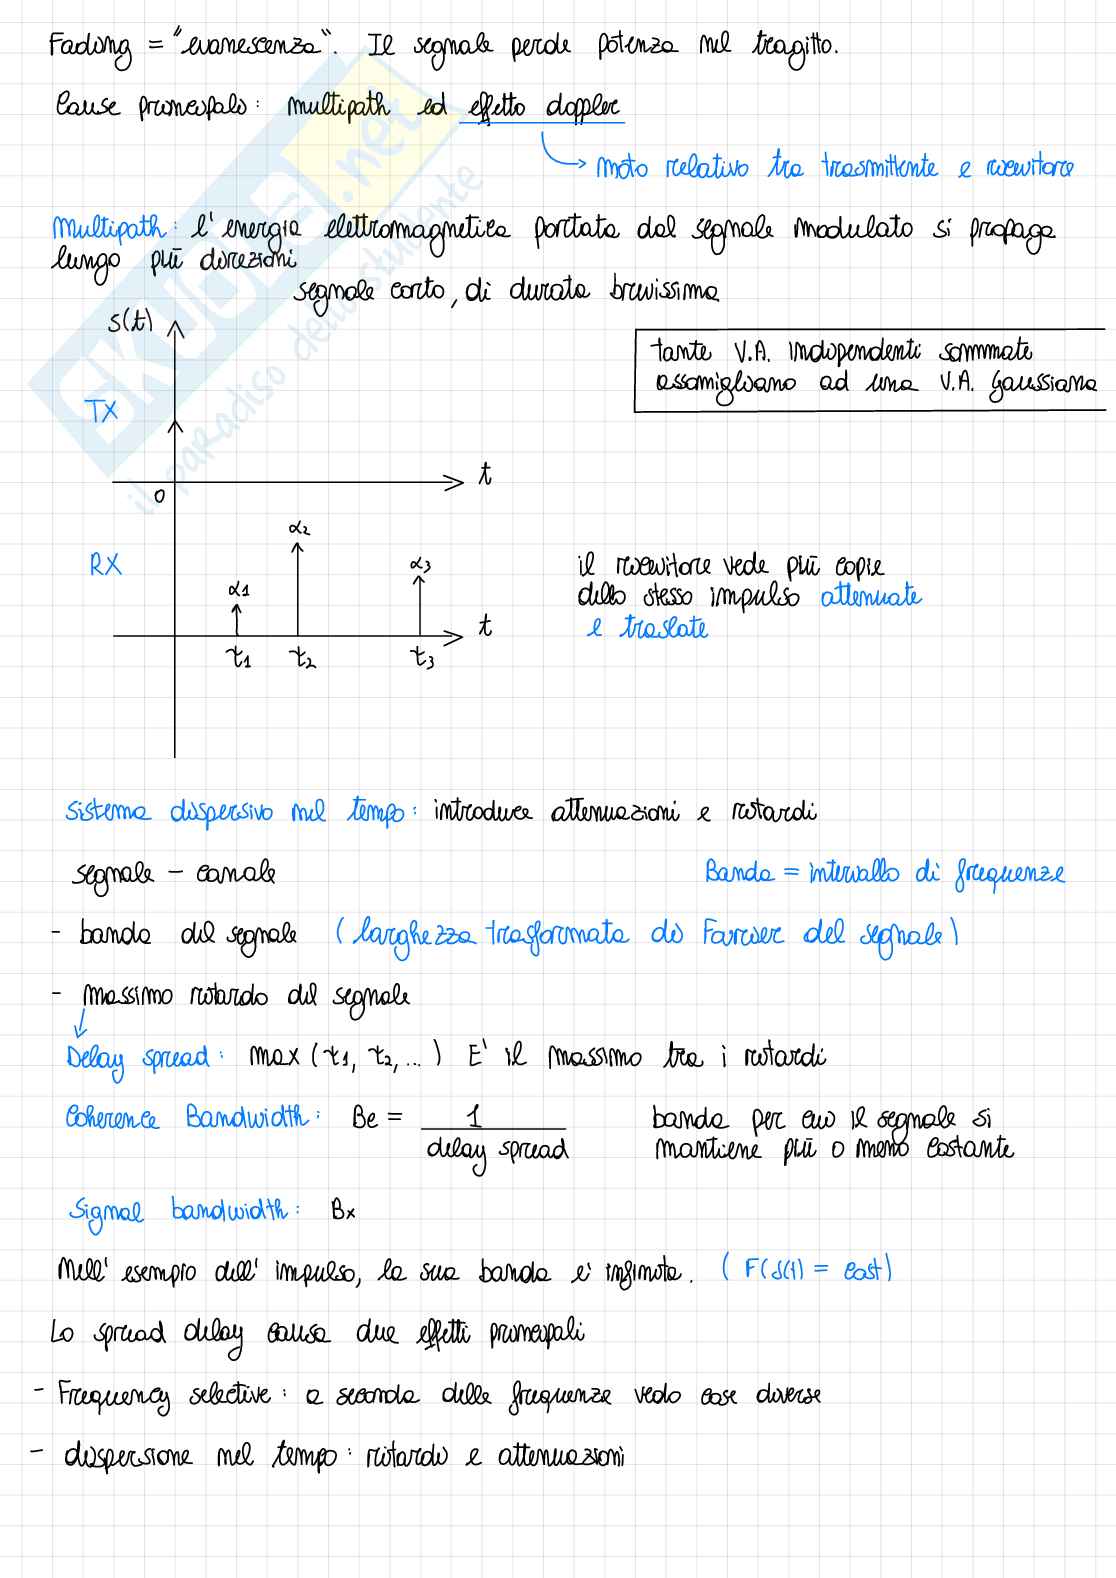 Fading = "evanescenza". Il segnale perde potenza nel tragitto.
Cause principali: multipath ed effetto doppler
moto relativo tra trasmittente e ricevitore
Multipath: l'energia elettromagnetica portata dal segnale modulato si propaga
lungo più direzioni
segnale corto, di durata brevissima
s(t)
tante V.A. indipendenti sommate
assomigliano ad una V.A. gaussiana
TX
t
0
α2
RX
α3
α1
il ricevitore vede più copie
dello stesso impulso attenuate
e traslate
t
τ1 τ2 τ3
Sistema dispersivo nel tempo: introduce attenuazioni e ritardi
segnale - canale
Banda = intervallo di frequenze
- banda del segnale (larghezza trasformata di Fourier del segnale)
- massimo ritardo del segnale
Delay spread: max (τ1, τ2, ...) E' il massimo tra i ritardi
Coherence Bandwidth: Bc = 1 / delay spread
banda per cui il segnale si
mantiene più o meno costante
Signal bandwidth: Bx
Nell' esempio dell' impulso, la sua banda è infinita. (F(δ(t) = cost)
Lo spread delay causa due effetti principali
- Frequency selective: a seconda delle frequenze vedo cose diverse
- dispersione nel tempo: ritardi e attenuazioni
SKUOLA.net
il paradiso dello studente